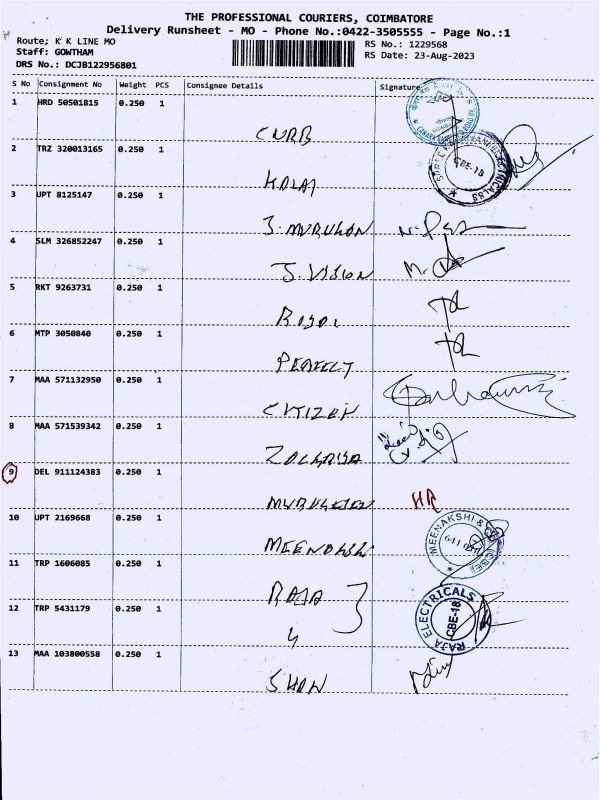 THE PROFESSIONAL COURIERS, COIMBATORE
Delivery Runsheet - MO - Phone No.:0422-3505555 - Page No.:1
Route; K K LINE MO
RS No.: 1229568
Staff: GOWTHAM
RS Date: 23-Aug-2023
DRS No.: DCJB122956801
S No Consignment No Weight PCS Consignee Details Signature
1 HRD 50501815 0.250 1
CNRB
2 TRZ 320013165 0.250 1
CBE-18
3 UPT 8125147 0.250 1
J. MURUGAN
4 SLM 326852247 0.250 1
J. VISION
5 RKT 9263731 0.250 1
ROYAL
6 MTP 3050840 0.250 1
PERFECT
7 MAA 571132950 0.250 1
CITIZEN
8 MAA 571539342 0.250 1
9 DEL 911124383 0.250 1
HR
10 UPT 2169668 0.250 1
MEENAKSHI &
641 0
MEENAKSHI
11 TRP 1606085 0.250 1
RAJA
12 TRP 5431179 0.250 1
RAJA ELECTRICALS
CBE-18
13 MAA 103800558 0.250 1
SHAN